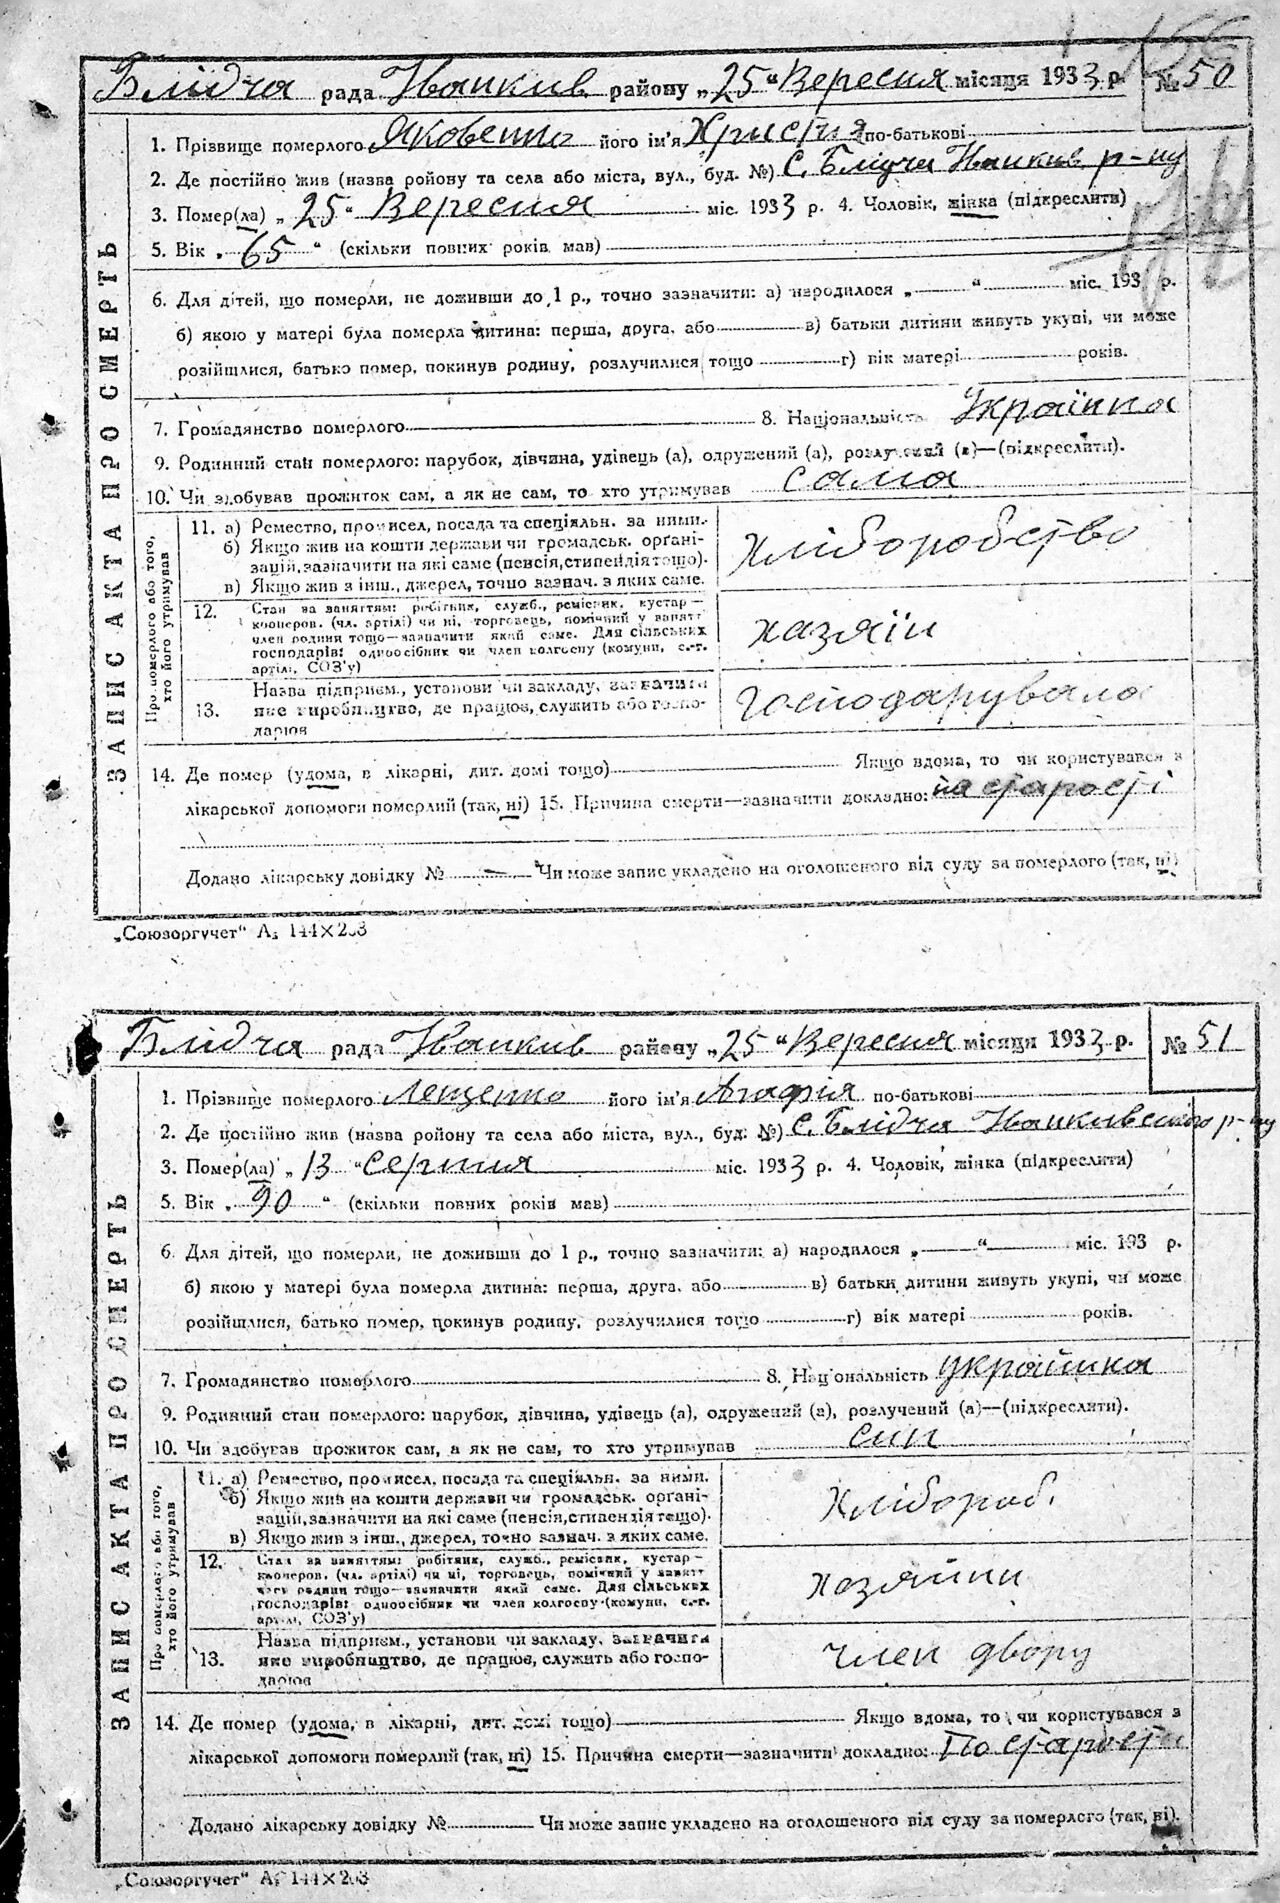 Блідча рада Іванків. району „25" Вересня місяця 1933 р. № 50
1. Прізвище померлого Яковенко його ім'я Христія по-батькові
2. Де постійно жив (назва району та села або міста, вул., буд. №) С. Блідча Іванків р-ну
3. Помер(ла) „25" Вересня міс. 1933 р. 4. Чоловік, жінка (підкреслити)
5. Вік „65" (скільки повних років мав)
6. Для дітей, що померли, не доживши до 1 р., точно зазначити: а) народилося „ " міс. 193 р.
б) якою у матері була померла дитина: перша, друга, або в) батьки дитини живуть укупі, чи може
розійшлися, батько помер, покинув родину, розлучилися тощо г) вік матері років.
7. Громадянство померлого 8. Національність Українка
9. Родинний стан померлого: парубок, дівчина, удівець (а), одружений (а), розлучений (а)—(підкреслити).
10. Чи здобував прожиток сам, а як не сам, то хто утримував сама
ЗАПИС АКТА ПРО СМЕРТЬ
Про померлого або того,
хто його утримував
11. а) Ремество, промисел, посада та спеціяльн. за ними.
б) Якщо жив на кошти держави чи громадськ. органі-
зацій, зазначити на які саме (пенсія, стипендія тощо).
в) Якщо жив з інш., джерел, точно зазнач. з яких саме.
хліборобство
12. Стан за заняттям: робітник, служб., ремісник, кустар—
кооперов. (чл. артілі) чи ні, торговець, помічний у занятт
член родини тощо—зазначити який саме. Для сільських
господарів: одноосібник чи член колгоспу (комуни, с.-г.
артілі, СОЗ'у)
хазяїн
13. Назва підприєм., установи чи закладу, зазначити
яке виробництво, де працює, служить або госпо-
дарює
Господарувала
14. Де помер (удома, в лікарні, дит. домі тощо) Якщо вдома, то чи користувався з
лікарської допомоги померлий (так, ні) 15. Причина смерти—зазначити докладно: на старості
Додано лікарську довідку № — Чи може запис укладено на оголошеного від суду за померлого (так, ні)
„Союзоргучет" А5 144×203
Блідча рада Іванків району „25" Вересня місяця 1933 р. № 51
1. Прізвище померлого Лещенко його ім'я Агафія по-батькові
2. Де постійно жив (назва району та села або міста, вул., буд. №) С. Блідча Іванківського р-ну
3. Помер(ла) „13" Серпня міс. 1933 р. 4. Чоловік, жінка (підкреслити)
5. Вік „90" (скільки повних років мав)
6. Для дітей, що померли, не доживши до 1 р., точно зазначити: а) народилося „ " міс. 193 р.
б) якою у матері була померла дитина: перша, друга, або в) батьки дитини живуть укупі, чи може
розійшлися, батько помер, покинув родину, розлучилися тощо г) вік матері років.
7. Громадянство померлого 8. Національність українка
9. Родинний стан померлого: парубок, дівчина, удівець (а), одружений (а), розлучений (а)—(підкреслити).
10. Чи здобував прожиток сам, а як не сам, то хто утримував син
ЗАПИС АКТА ПРО СМЕРТЬ
Про померлого або того,
хто його утримував
11. а) Ремество, промисел, посада та спеціяльн. за ними.
б) Якщо жив на кошти держави чи громадськ. органі-
зацій, зазначити на які саме (пенсія, стипендія тощо).
в) Якщо жив з інш., джерел, точно зазнач. з яких саме.
хлібороб.
12. Стан за заняттям: робітник, служб., ремісник, кустар—
кооперов. (чл. артілі) чи ні, торговець, помічний у занятт
член родини тощо—зазначити який саме. Для сільських
господарів: одноосібник чи член колгоспу (комуни, с.-г.
артілі, СОЗ'у)
хазяйки
13. Назва підприєм., установи чи закладу, зазначити
яке виробництво, де працює, служить або госпо-
дарює
член двору
14. Де помер (удома, в лікарні, дит. домі тощо) Якщо вдома, то чи користувався з
лікарської допомоги померлий (так, ні) 15. Причина смерти—зазначити докладно: По старости
Додано лікарську довідку № Чи може запис укладено на оголошеного від суду за померлого (так, ні).
„Союзоргучет" А5 144×203